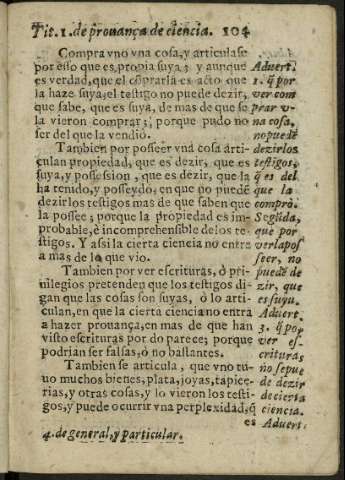 Tit. 1. de prouança de ciencia. 104
Compra vno vna cosa, y articulase
por esso que es propia suya; y aunque
es verdad, que el cõprarla es acto que
la haze suya, el testigo no puede dezir,
que sabe, que es suya, de mas de que se
la vieron comprar; porque pudo no
ser del que la vendiò.
Tambien por posseer vna cosa arti-
culan propiedad, que es dezir, que es
suya, y possession, que es dezir, que la
ha tenido, y posseydo, en que no puedẽ
dezir los testigos mas de que saben que
la possee; porque la propiedad es im-
probable, è incomprehensible de los te-
stigos. Y assi la cierta ciencia no entra
a mas de lo que vio.
Tambien por ver escrituras, ò pri-
uilegios pretenden que los testigos di-
gan que las cosas son suyas, ò lo arti-
culan, en que la cierta ciencia no entra
a hazer prouança, en mas de que han
visto escrituras por do parece; porque
podrian ser falsas, ò no bastantes.
Tambien se articula, que vno tu-
uo muchos bienes, plata, joyas, tapice-
rias, y otras cosas, y lo vieron los testi-
gos, y puede ocurrir vna perplexidad, q̃
es
4. de general, y particular.
Aduert.
1. q̃ por
ver com
prar v-
na cosa,
no puedẽ
dezir los
testigos,
q̃ es del
que la
comprò.
Segũda,
que por
verla pos
seer, no
puedẽ de
zir, que
es suyu.
Aduert.
3. q̃ por
ver es-
crituras
no se pue
de dezir
de cierta
ciencia.
Aduert.